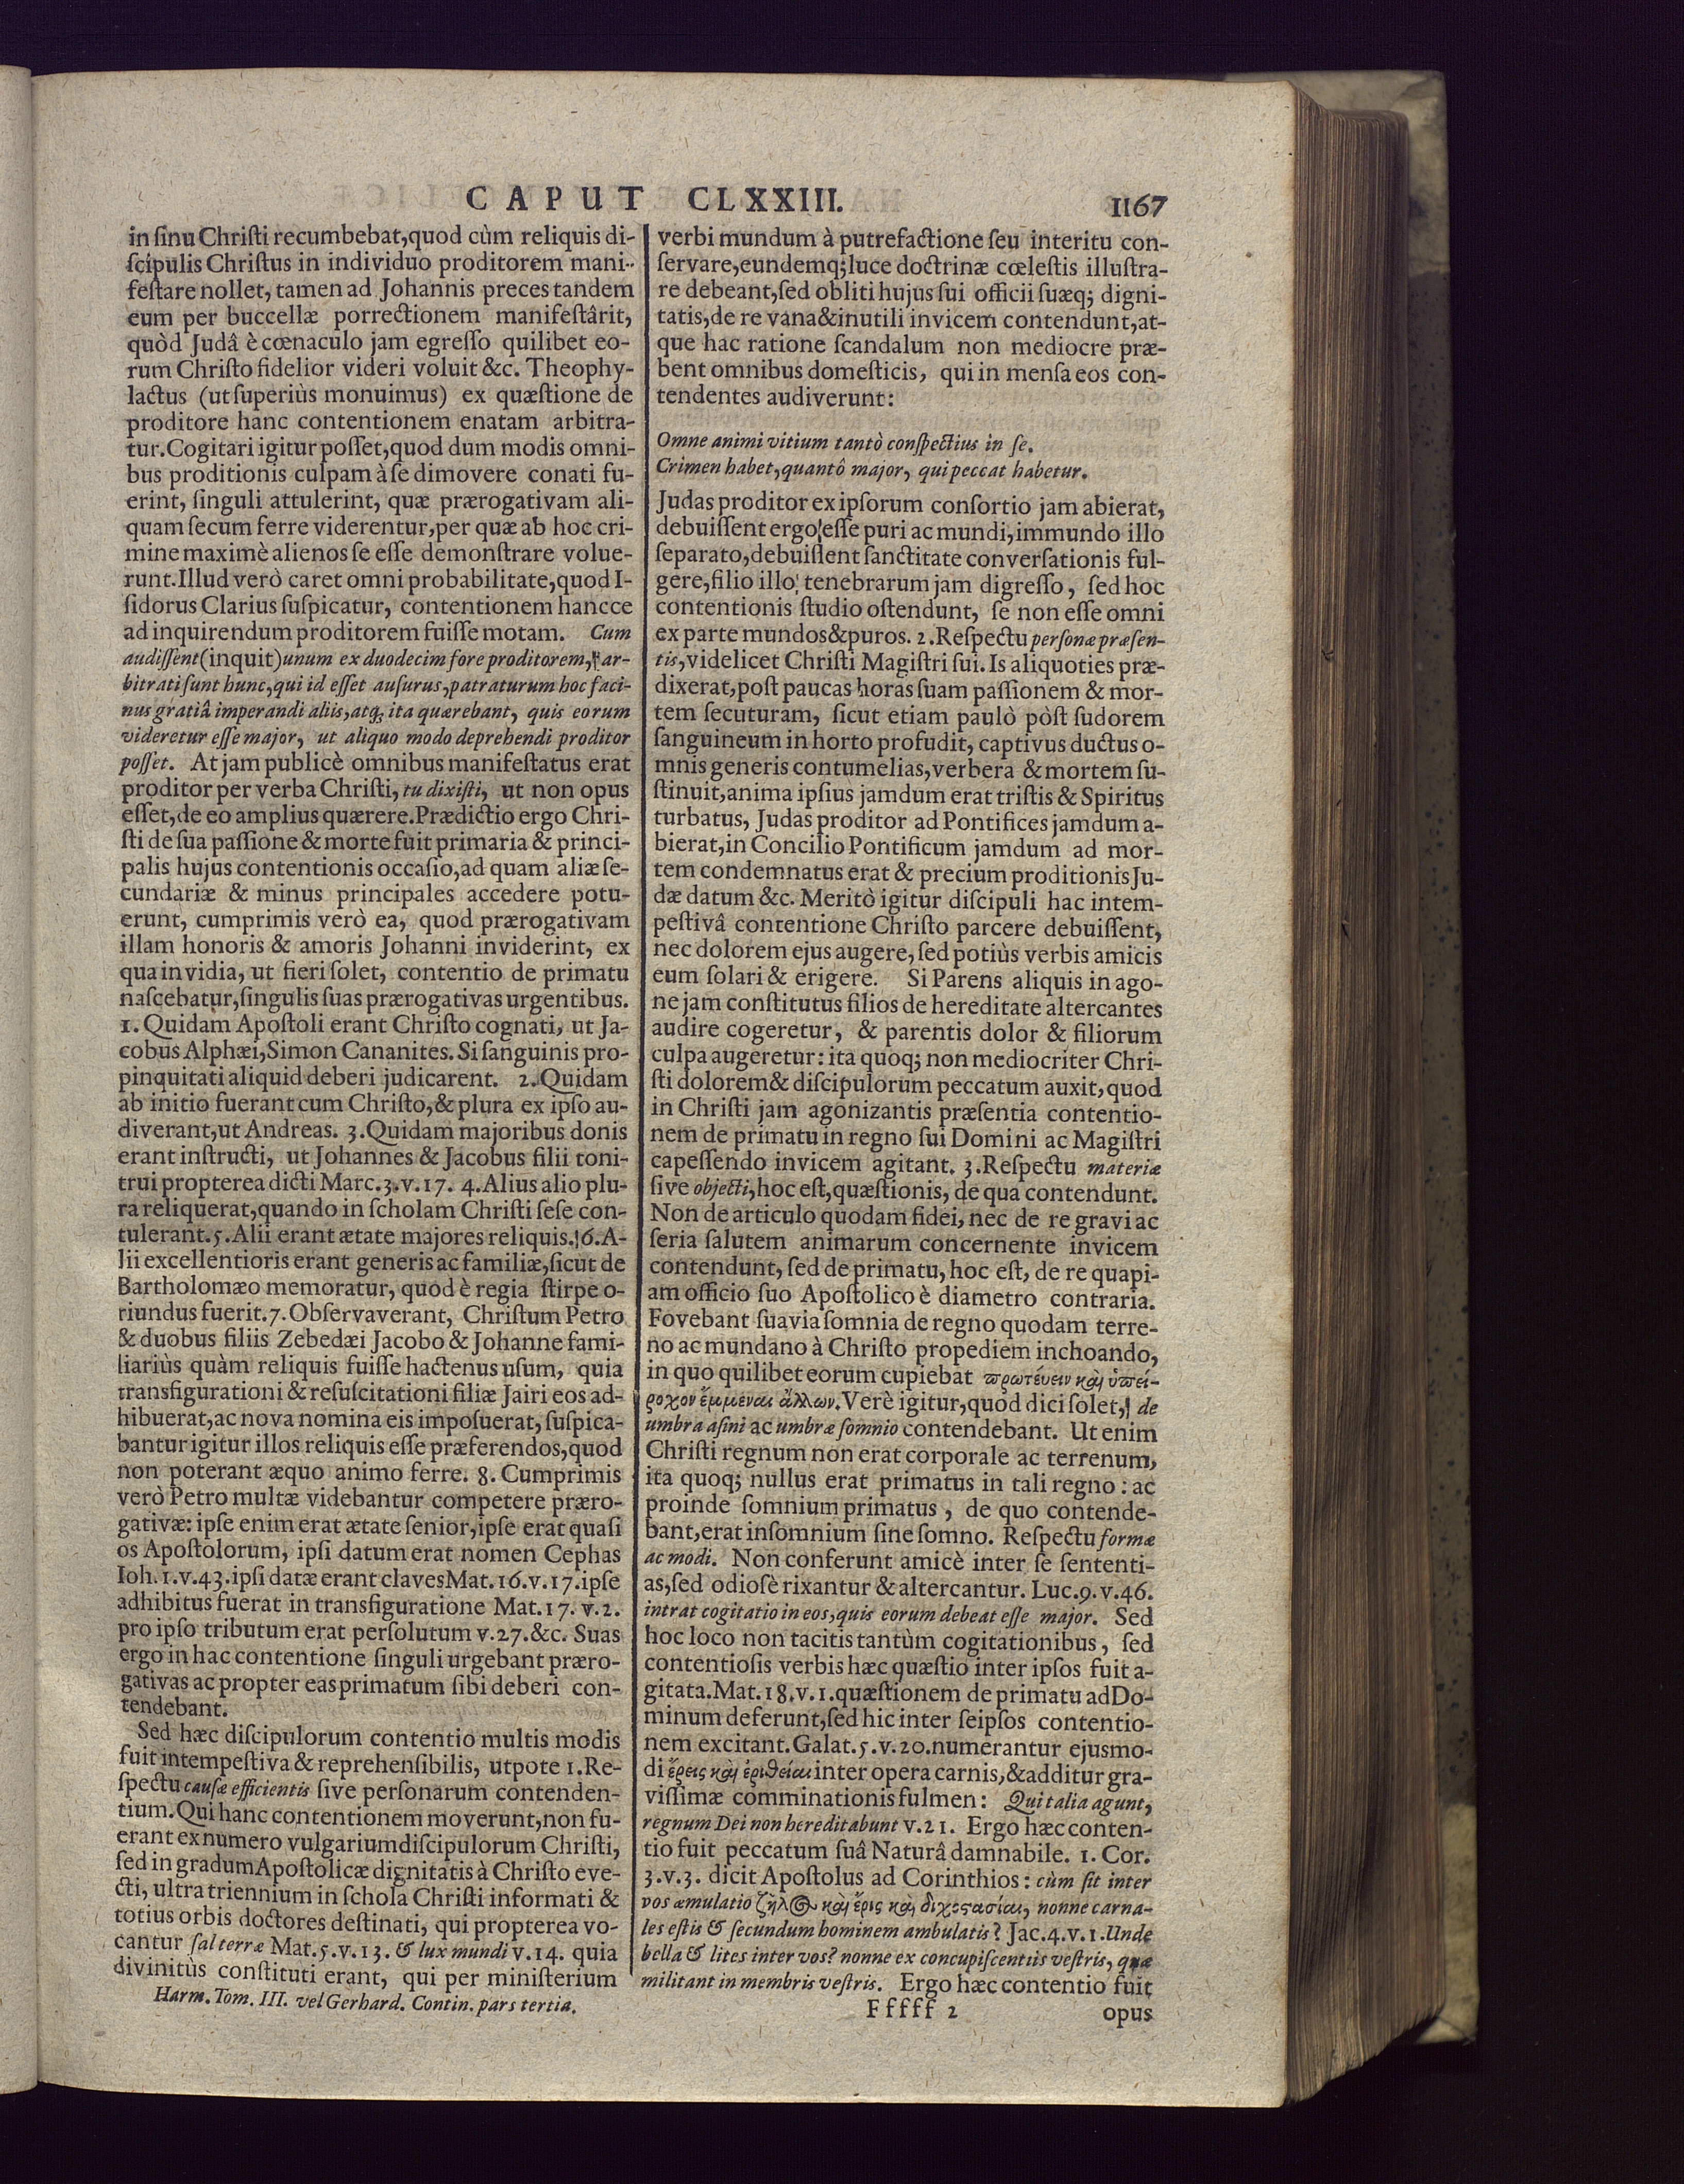 CAPUT CLXXIII. 1167
in ſinu Chriſti recumbebat, quod cùm reliquis di-
ſcipulis Chriſtus in individuo proditorem mani-
feſtare nollet, tamen ad Johannis preces tandem
eum per buccellæ porrectionem manifeſtârit,
quòd Judâ è cœnaculo jam egreſſo quilibet eo-
rum Chriſto fidelior videri voluit &c. Theophy-
lactus (ut ſuperiùs monuimus) ex quæſtione de
proditore hanc contentionem enatam arbitra-
tur. Cogitari igitur poſſet, quod dum modis omni-
bus proditionis culpam à ſe dimovere conati fu-
erint, ſinguli attulerint, quæ prærogativam ali-
quam ſecum ferre viderentur, per quæ ab hoc cri-
mine maximè alienos ſe eſſe demonſtrare volue-
runt. Illud verò caret omni probabilitate, quod I-
ſidorus Clarius ſuſpicatur, contentionem hancce
ad inquirendum proditorem fuiſſe motam. Cum
audiſſent (inquit) unum ex duodecim fore proditorem, ar-
bitrati ſunt hunc, qui id eſſet auſurus, patraturum hoc faci-
nus gratiâ imperandi aliis, atq; ita quærebant, quis eorum
videretur eſſe major, ut aliquo modo deprehendi proditor
poſſet. At jam publicè omnibus manifeſtatus erat
proditor per verba Chriſti, tu dixiſti, ut non opus
eſſet, de eo amplius quærere. Prædictio ergo Chri-
ſti de ſua paſſione & morte fuit primaria & princi-
palis hujus contentionis occaſio, ad quam aliæ ſe-
cundariæ & minus principales accedere potu-
erunt, cumprimis verò ea, quod prærogativam
illam honoris & amoris Johanni inviderint, ex
qua invidia, ut fieri ſolet, contentio de primatu
naſcebatur, ſingulis ſuas prærogativas urgentibus.
1. Quidam Apoſtoli erant Chriſto cognati, ut Ja-
cobus Alphæi, Simon Cananites. Si ſanguinis pro-
pinquitati aliquid deberi judicarent. 2. Quidam
ab initio fuerant cum Chriſto, & plura ex ipſo au-
diverant, ut Andreas. 3. Quidam majoribus donis
erant inſtructi, ut Johannes & Jacobus filii toni-
trui propterea dicti Marc. 3. v. 17. 4. Alius alio plu-
ra reliquerat, quando in ſcholam Chriſti ſeſe con-
tulerant. 5. Alii erant ætate majores reliquis. 6. A-
lii excellentioris erant generis ac familiæ, ſicut de
Bartholomæo memoratur, quod è regia ſtirpe o-
riundus fuerit. 7. Obſervaverant, Chriſtum Petro
& duobus filiis Zebedæi Jacobo & Johanne fami-
liariùs quàm reliquis fuiſſe hactenus uſum, quia
transfigurationi & reſuſcitationi filiæ Jairi eos ad-
hibuerat, ac nova nomina eis impoſuerat, ſuſpica-
bantur igitur illos reliquis eſſe præferendos, quod
non poterant æquo animo ferre. 8. Cumprimis
verò Petro multæ videbantur competere præro-
gativæ: ipſe enim erat ætate ſenior, ipſe erat quaſi
os Apoſtolorum, ipſi datum erat nomen Cephas
Ioh. 1. v. 43. ipſi datæ erant claves Mat. 16. v. 17. ipſe
adhibitus fuerat in transfiguratione Mat. 17. v. 2.
pro ipſo tributum erat perſolutum v. 27. &c. Suas
ergo in hac contentione ſinguli urgebant præro-
gativas ac propter eas primatum ſibi deberi con-
tendebant.
Sed hæc diſcipulorum contentio multis modis
fuit intempeſtiva & reprehenſibilis, utpote 1. Re-
ſpectu cauſæ efficientis ſive perſonarum contenden-
tium. Qui hanc contentionem moverunt, non fu-
erant ex numero vulgarium diſcipulorum Chriſti,
ſed in gradum Apoſtolicæ dignitatis à Chriſto eve-
cti, ultra triennium in ſchola Chriſti informati &
totius orbis doctores deſtinati, qui propterea vo-
cantur ſal terræ Mat. 5. v. 13. & lux mundi v. 14. quia
divinitùs conſtituti erant, qui per miniſterium
Harm. Tom. III. vel Gerhard. Contin. pars tertia.
verbi mundum à putrefactione ſeu interitu con-
ſervare, eundemq; luce doctrinæ cœleſtis illuſtra-
re debeant, ſed obliti hujus ſui officii ſuæq; digni-
tatis, de re vana & inutili invicem contendunt, at-
que hac ratione ſcandalum non mediocre præ-
bent omnibus domeſticis, qui in menſa eos con-
tendentes audiverunt:
Omne animi vitium tantò conſpectius in ſe.
Crimen habet, quantô major, qui peccat habetur.
Judas proditor ex ipſorum conſortio jam abierat,
debuiſſent ergo eſſe puri ac mundi, immundo illo
ſeparato, debuiſſent ſanctitate converſationis ful-
gere, filio illo tenebrarum jam digreſſo, ſed hoc
contentionis ſtudio oſtendunt, ſe non eſſe omni
ex parte mundos & puros. 2. Reſpectu perſonæ præſen-
tis, videlicet Chriſti Magiſtri ſui. Is aliquoties præ-
dixerat, poſt paucas horas ſuam paſſionem & mor-
tem ſecuturam, ſicut etiam paulò pòſt ſudorem
ſanguineum in horto profudit, captivus ductus o-
mnis generis contumelias, verbera & mortem ſu-
ſtinuit, anima ipſius jamdum erat triſtis & Spiritus
turbatus, Judas proditor ad Pontifices jamdum a-
bierat, in Concilio Pontificum jamdum ad mor-
tem condemnatus erat & precium proditionis Ju-
dæ datum &c. Meritò igitur diſcipuli hac intem-
peſtivâ contentione Chriſto parcere debuiſſent,
nec dolorem ejus augere, ſed potiùs verbis amicis
eum ſolari & erigere. Si Parens aliquis in ago-
ne jam conſtitutus filios de hereditate altercantes
audire cogeretur, & parentis dolor & filiorum
culpa augeretur: ita quoq; non mediocriter Chri-
ſti dolorem & diſcipulorum peccatum auxit, quod
in Chriſti jam agonizantis præſentia contentio-
nem de primatu in regno ſui Domini ac Magiſtri
capeſſendo invicem agitant. 3. Reſpectu materiæ
ſive objecti, hoc eſt, quæſtionis, de qua contendunt.
Non de articulo quodam fidei, nec de re gravi ac
ſeria ſalutem animarum concernente invicem
contendunt, ſed de primatu, hoc eſt, de re quapi-
am officio ſuo Apoſtolico è diametro contraria.
Fovebant ſuavia ſomnia de regno quodam terre-
no ac mundano à Chriſto propediem inchoando,
in quo quilibet eorum cupiebat πρωτέυειν καὶ ὑπεί-
ροχον ἔμμεναι ἄλλων. Verè igitur, quod dici ſolet, de
umbra aſini ac umbræ ſomnio contendebant. Ut enim
Chriſti regnum non erat corporale ac terrenum,
ita quoq; nullus erat primatus in tali regno: ac
proinde ſomnium primatus, de quo contende-
bant, erat inſomnium ſine ſomno. Reſpectu formæ
ac modi. Non conferunt amicè inter ſe ſententi-
as, ſed odioſè rixantur & altercantur. Luc. 9. v. 46.
intrat cogitatio in eos, quis eorum debeat eſſe major. Sed
hoc loco non tacitis tantùm cogitationibus, ſed
contentioſis verbis hæc quæſtio inter ipſos fuit a-
gitata. Mat. 18. v. 1. quæſtionem de primatu ad Do-
minum deferunt, ſed hic inter ſeipſos contentio-
nem excitant. Galat. 5. v. 20. numerantur ejusmo-
di ἔρεις καὶ ἐριθείαι inter opera carnis, & additur gra-
viſſimæ comminationis fulmen: Qui talia agunt,
regnum Dei non hereditabunt v. 21. Ergo hæc conten-
tio fuit peccatum ſuâ Naturâ damnabile. 1. Cor.
3. v. 3. dicit Apoſtolus ad Corinthios: cùm ſit inter
vos æmulatio ζῆλος καὶ ἔρις καὶ διχοστασίαι, nonne carna-
les eſtis & ſecundum hominem ambulatis? Jac. 4. v. 1. Unde
bella & lites inter vos? nonne ex concupiſcentiis veſtris, quæ
militant in membris veſtris. Ergo hæc contentio fuit
Fffff 2 opus